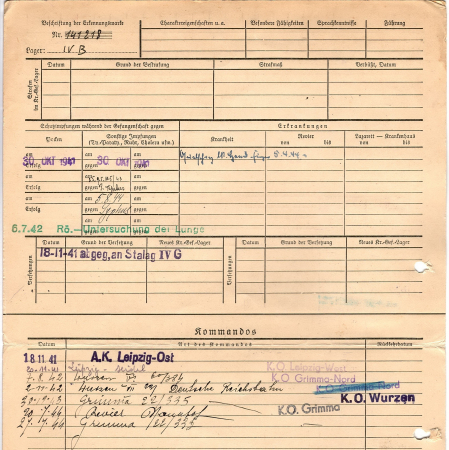 Beschriftung der Erkennungsmarke
Nr. 141218
Lager: IV B
Charaktereigenschaften u.a.
Besondere Fähigkeiten
Sprachkenntnisse
Führung
Strafen im Kr.-Gef.-Lager
Datum
Grund der Bestrafung
Strafmaß
Verbüßt, Datum
Schutzimpfungen während der Gefangenschaft gegen
Erkrankungen
Pocken
Sonstige Impfungen
(Ty.-Paraty., Ruhr, Cholera usw.)
Krankheit
Revier
von bis
Lazarett — Krankenhaus
von bis
am 30. OKT 1941
am 30. OKT 1941
Erfolg
gegen
am
am
Erfolg
gegen
am
am 5.8.44
Erfolg
gegen
am
am
Erfolg
gegen
8.4.44
6.7.42 Rö.-Untersuchung der Lunge
Versetzungen
Datum
Grund der Versetzung
Neues Kr.-Gef.-Lager
Datum
Grund der Versetzung
Neues Kr.-Gef.-Lager
18-11-41 abgeg, an Stalag IV G
Kommandos
Datum
Art des Kommandos
Rückkehrdatum
18 11. 41 A.K. Leipzig-Ost
K.O. Leipzig-West
7.8.42 Wurzen
K.O. Grimma-Nord
2-11-42 Deutsche Reichsbahn
K.O. Grimma-Nord
Grimma 22/335
K.O. Wurzen
20.7.44 Revier
K.O. Grimma
27.7.44 Grimma 122/335